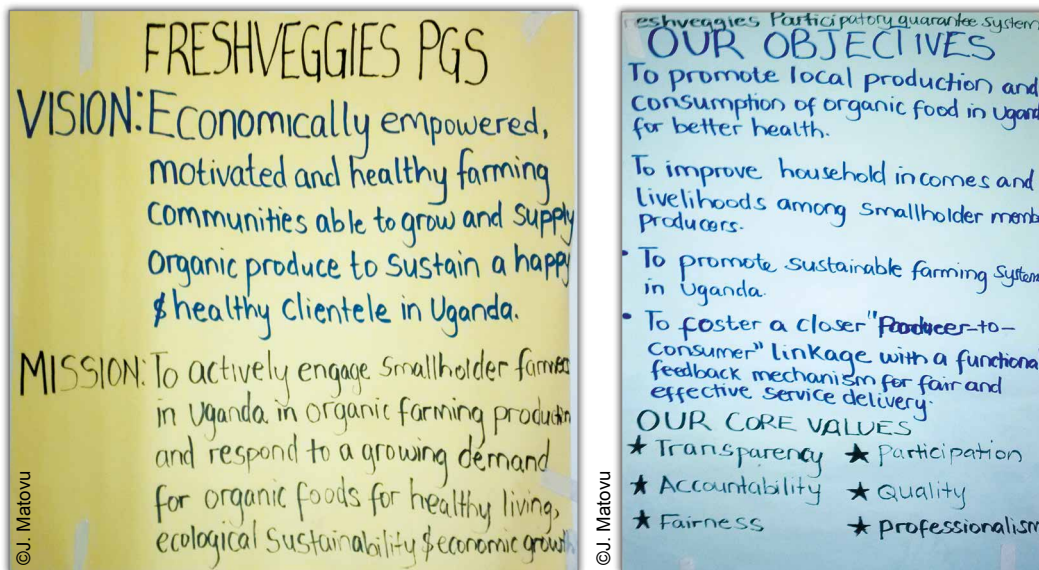 FRESHVEGGIES PGS
VISION: Economically empowered,
motivated and healthy farming
communities able to grow and supply
organic produce to sustain a happy
& healthy clientele in Uganda.
MISSION: To actively engage smallholder farmers
in Uganda in organic farming production
and respond to a growing demand
for organic foods for healthy living,
ecological sustainability & economic growth
©J. Matovu
eshveggies Participatory guarantee system
OUR OBJECTIVES
To promote local production and
consumption of organic food in Ugand
for better health.
To improve household incomes and
livelihoods among smallholder memb
producers.
• To promote sustainable farming system
in Uganda.
• To foster a closer "Producer-to-
consumer" linkage with a functiona
feedback mechanism for fair and
effective service delivery.
OUR CORE VALUES
★ Transparency ★ Participation
★ Accountability ★ Quality
★ Fairness ★ professionalism
©J. Matovu